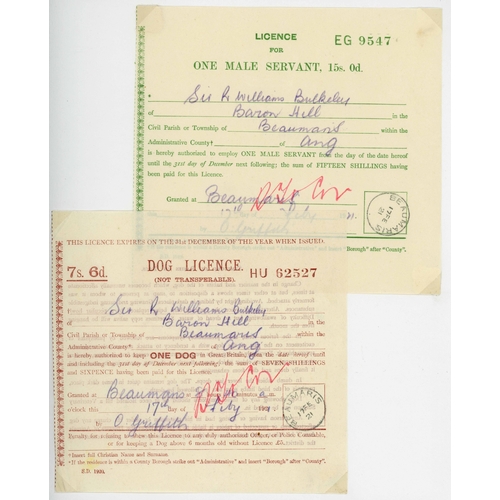 LICENCE
FOR
EG 9547
ONE MALE SERVANT, 15s. 0d.
Sir R Williams Bulkeley
of Baron Hill in the
Civil Parish or Township of Beaumaris within the
Administrative County† of Ang
is hereby authorized to employ ONE MALE SERVANT from the day of the date hereof until
the 31st day of December next following; the sum of FIFTEEN SHILLINGS having
been paid for this Licence.
Granted at Beaumaris
17th
O. Griffith
BEAUMARIS
17 FE
21
Borough" after "County".
THIS LICENCE EXPIRES ON THE 31st DECEMBER OF THE YEAR WHEN ISSUED.
7s. 6d. DOG LICENCE. HU 62527
(NOT TRANSFERABLE)
Sir R Williams Bulkeley
of Baron Hill in the
Civil Parish or Township of Beaumaris within the
Administrative County† of Ang
is hereby authorized to keep ONE DOG in Great Britain from the date hereof
until the 31st day of December next following; the sum of SEVEN SHILLINGS
and SIXPENCE having been paid for this Licence.
Granted at Beaumaris
o'clock this 17th Day of Feby
by O. Griffith
BEAUMARIS
21
Penalty for refusing to show this Licence to any duly authorized Officer, or Police Constable,
or for keeping a Dog above 6 months old without Licence £5.
*Insert full Christian Name and Surname.
†If the residence is within a County Borough strike out "Administrative" and insert "Borough" after "County".